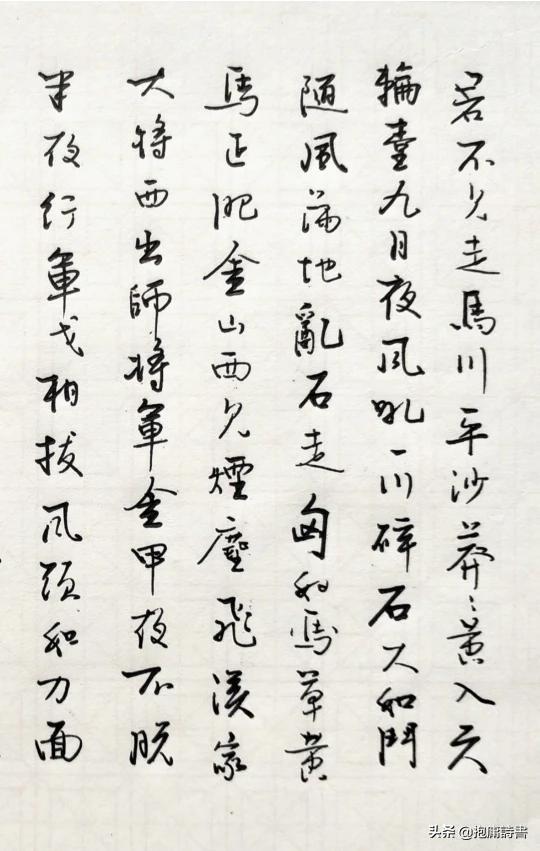 君不見走馬川平沙莽々黄入天
輪臺九月夜風吼一川碎石大如鬥
随風滿地亂石走匈奴馬草黄
馬正肥金山西見煙塵飛漢家
大將西出師將軍金甲夜不脱
半夜行軍戈相拔風頭如刀面
头条 @抱詩書